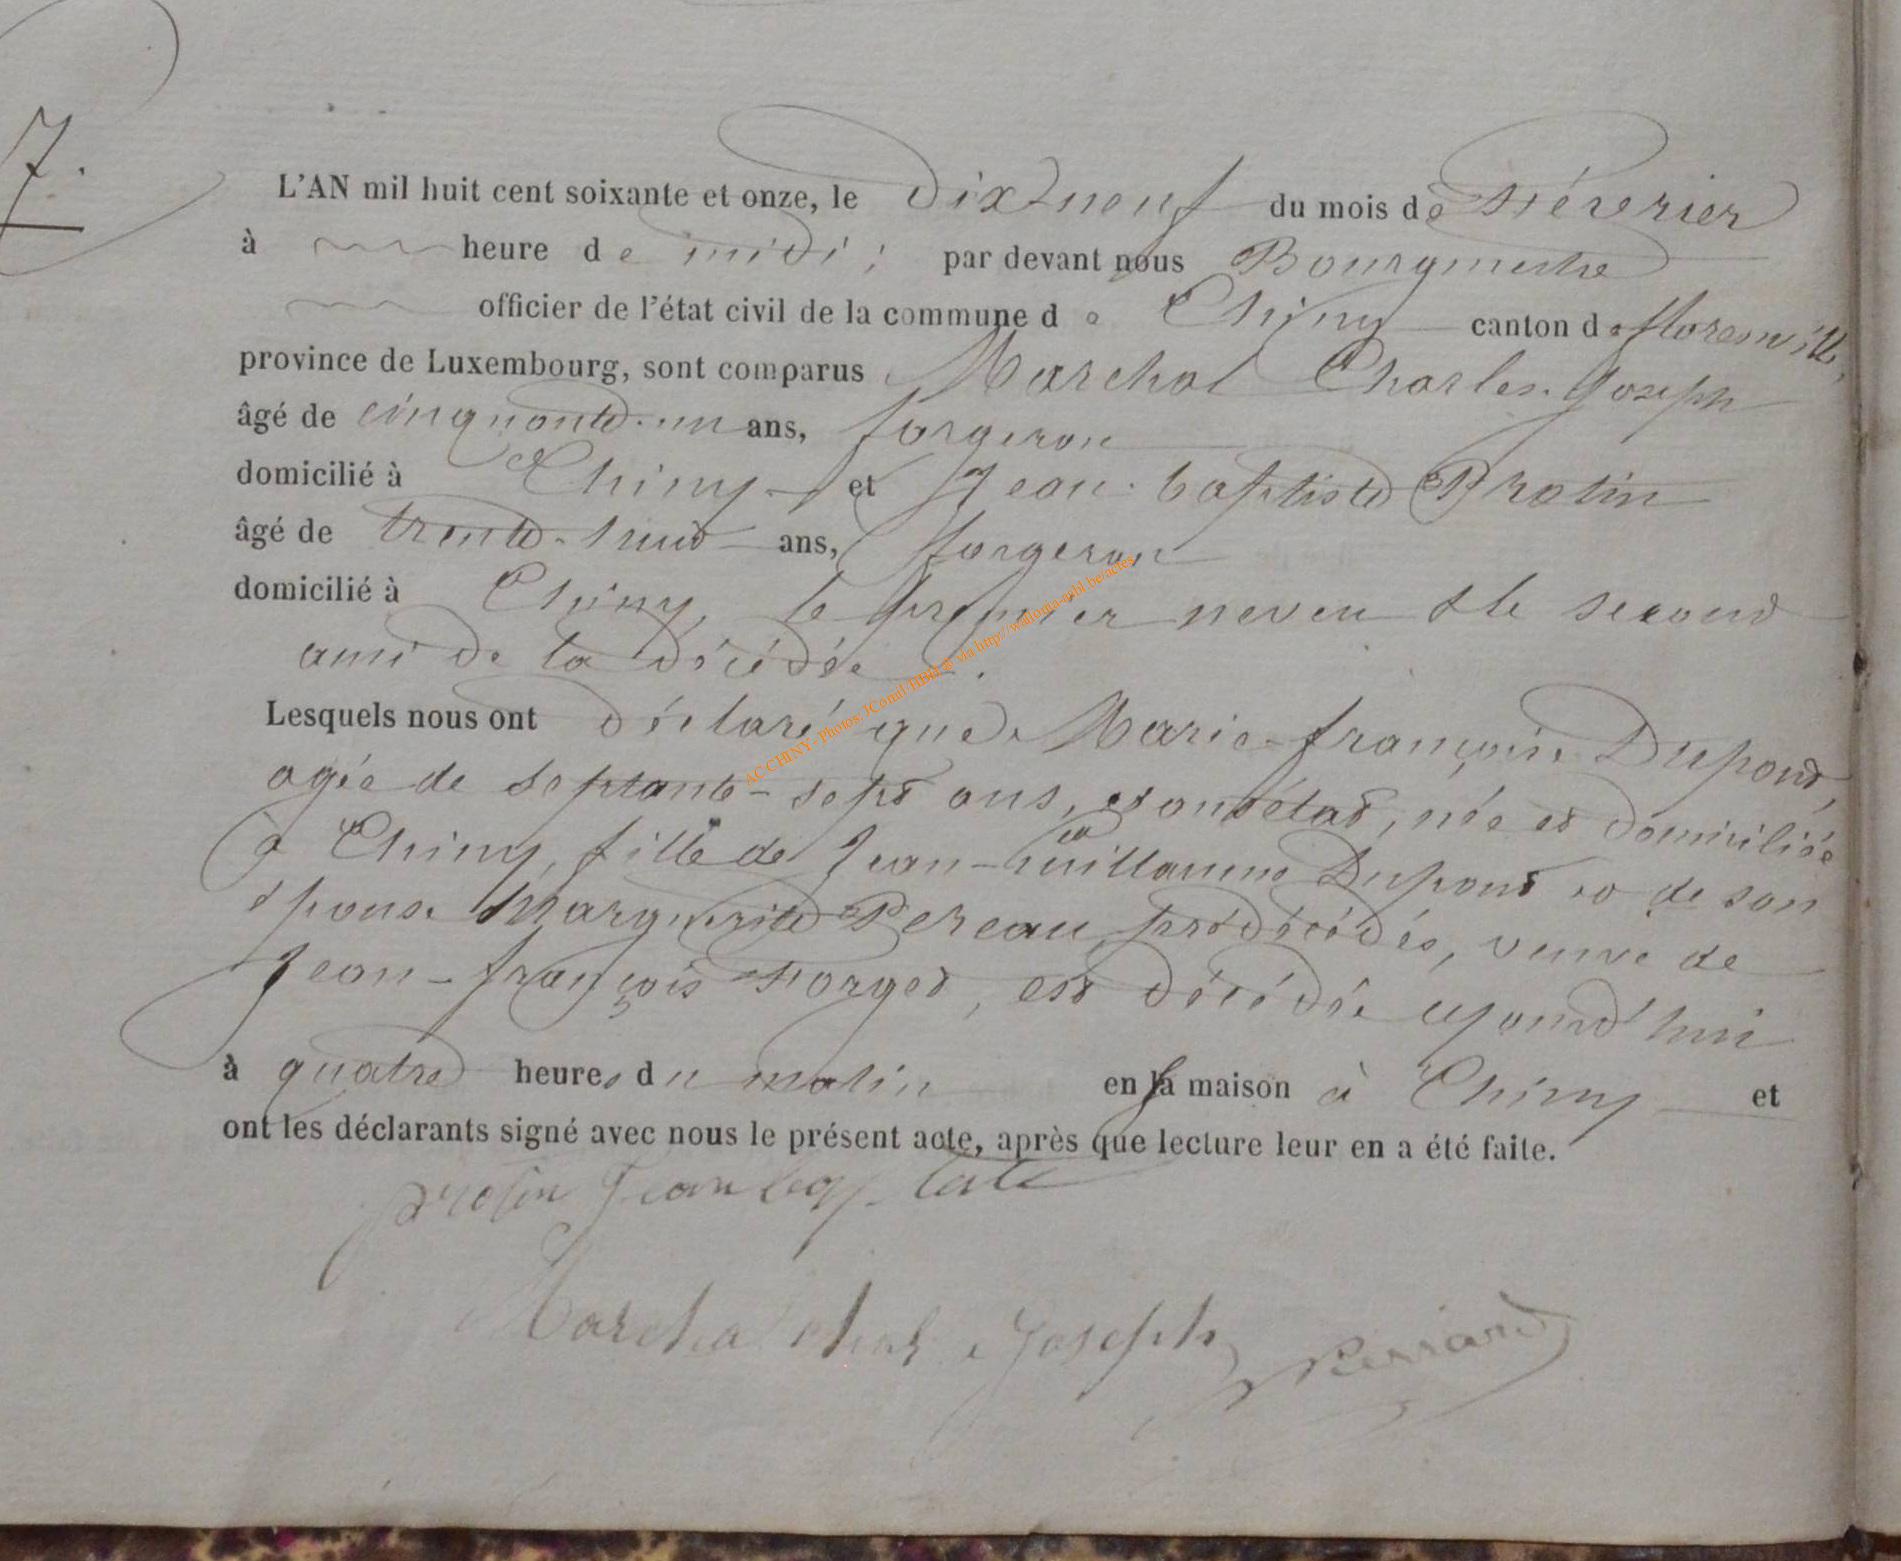 7.
L'AN mil huit cent soixante et onze, le dix-neuf du mois de Février
à heure de midi; par devant nous Bourgmestre
officier de l'état civil de la commune de Chiny canton de florenville,
province de Luxembourg, sont comparus Marchal Charles-Joseph
âgé de cinquante-un ans, forgeron
domicilié à Chiny et Jean-baptiste Protin
âgé de trente-huit ans, forgeron
domicilié à Chiny, le premier neveu & le second
ami de la décédée.
Lesquels nous ont déclaré que Marie-françoise Dupont,
agée de septante-sept ans, sans état, née et domiciliée
à Chiny, fille de Jean-Guillaume Dupont et de son
épouse Marguerite Pereau, prédécédés, veuve de
Jean-françois Forget, est décédée ajourd'hui
à quatre heures du matin en sa maison à Chiny et
ont les déclarants signé avec nous le présent acte, après que lecture leur en a été faite.
protin Jean bap-tiste
Marchal charl Joseph
AC CHINY - Photos: via http://wallonia-asbl.be/actes